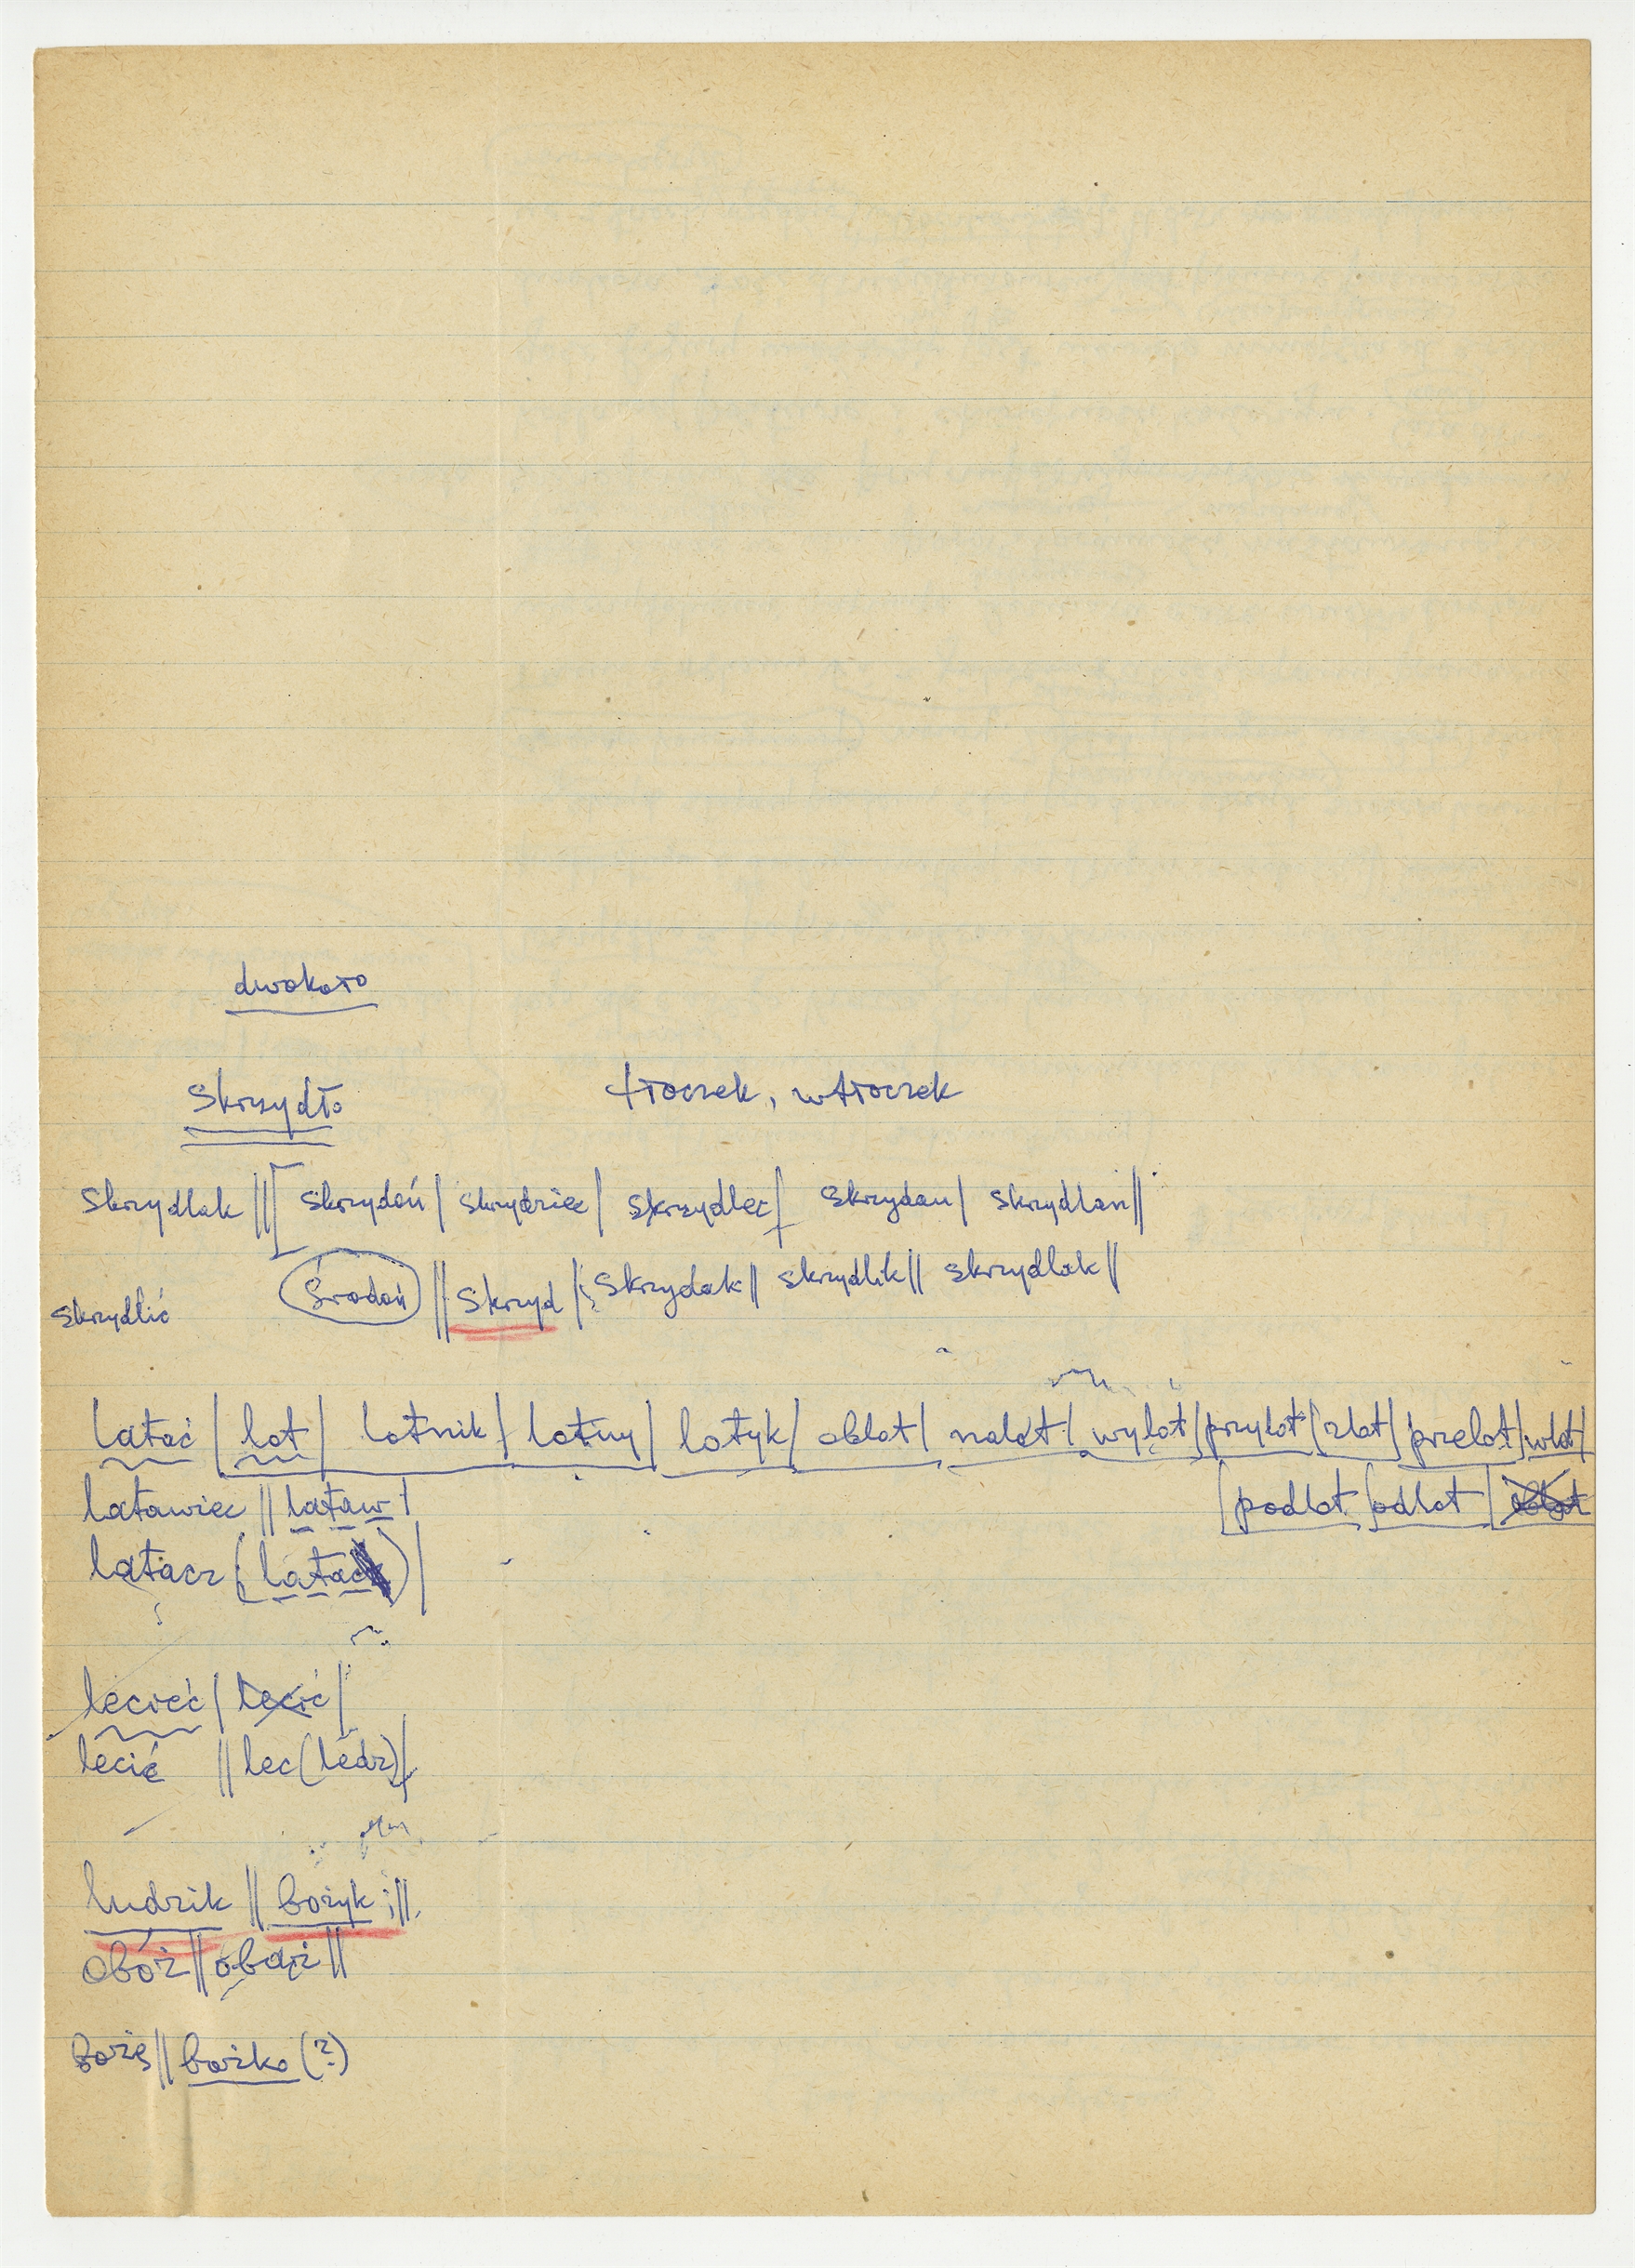 dwokoło
Skrzydło
tłoczek, wtłoczek
Skrzydlak ||| [ skrzydoń | skrzydziec | skrzydlec | skrzydan | skrzydlan ||
środoń || skrzyd | skrzydak || skrzydlik || skrzydlak ||
skrzydlić
latać | lot | lotnik | lotny | lotyk | oblot | nalot | wylot | przylot | zlot | przelot | wlot |
latawiec || lataw | | podlot | odlot |
latacz ( latac ) |
lecieć | lecić |
lecić || lec (ledz) |
ludzik || bożyk ; ||
obóż || obąż ||
bożę || bożko (?)